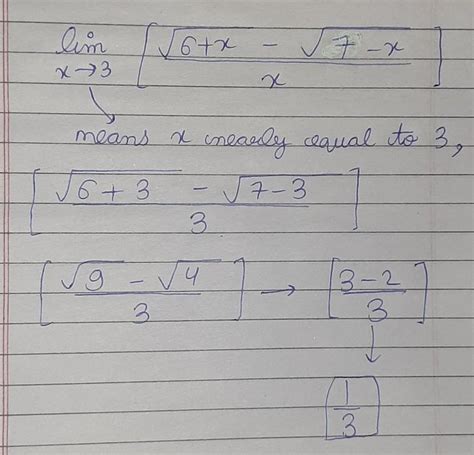 lim x→3 [ (√6+x - √7-x) / x ]
means x nearly equal to 3,
[ (√6+3 - √7-3) / 3 ]
[ (√9 - √4) / 3 ] → [ (3-2) / 3 ]
↓
1/3